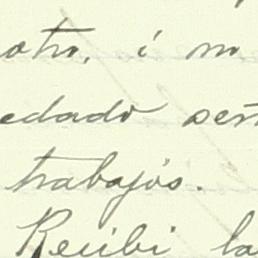 otro, i no
edado
trabajos.
Recibi la